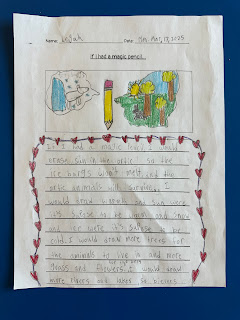 Name: Date: Mon, Mar, 17, 2025
If I had a magic pencil...
If I had a magic pencil, I would
erase sun in the artic so the
ice bergs won't melt and the
artic animals will survive. I
would draw more and sun were
it's supose to be and snow
and ice were it's supose to be
cold. I would draw more trees for
the animals to live in and more
grass and flowers. I would draw
more rivers and lakes